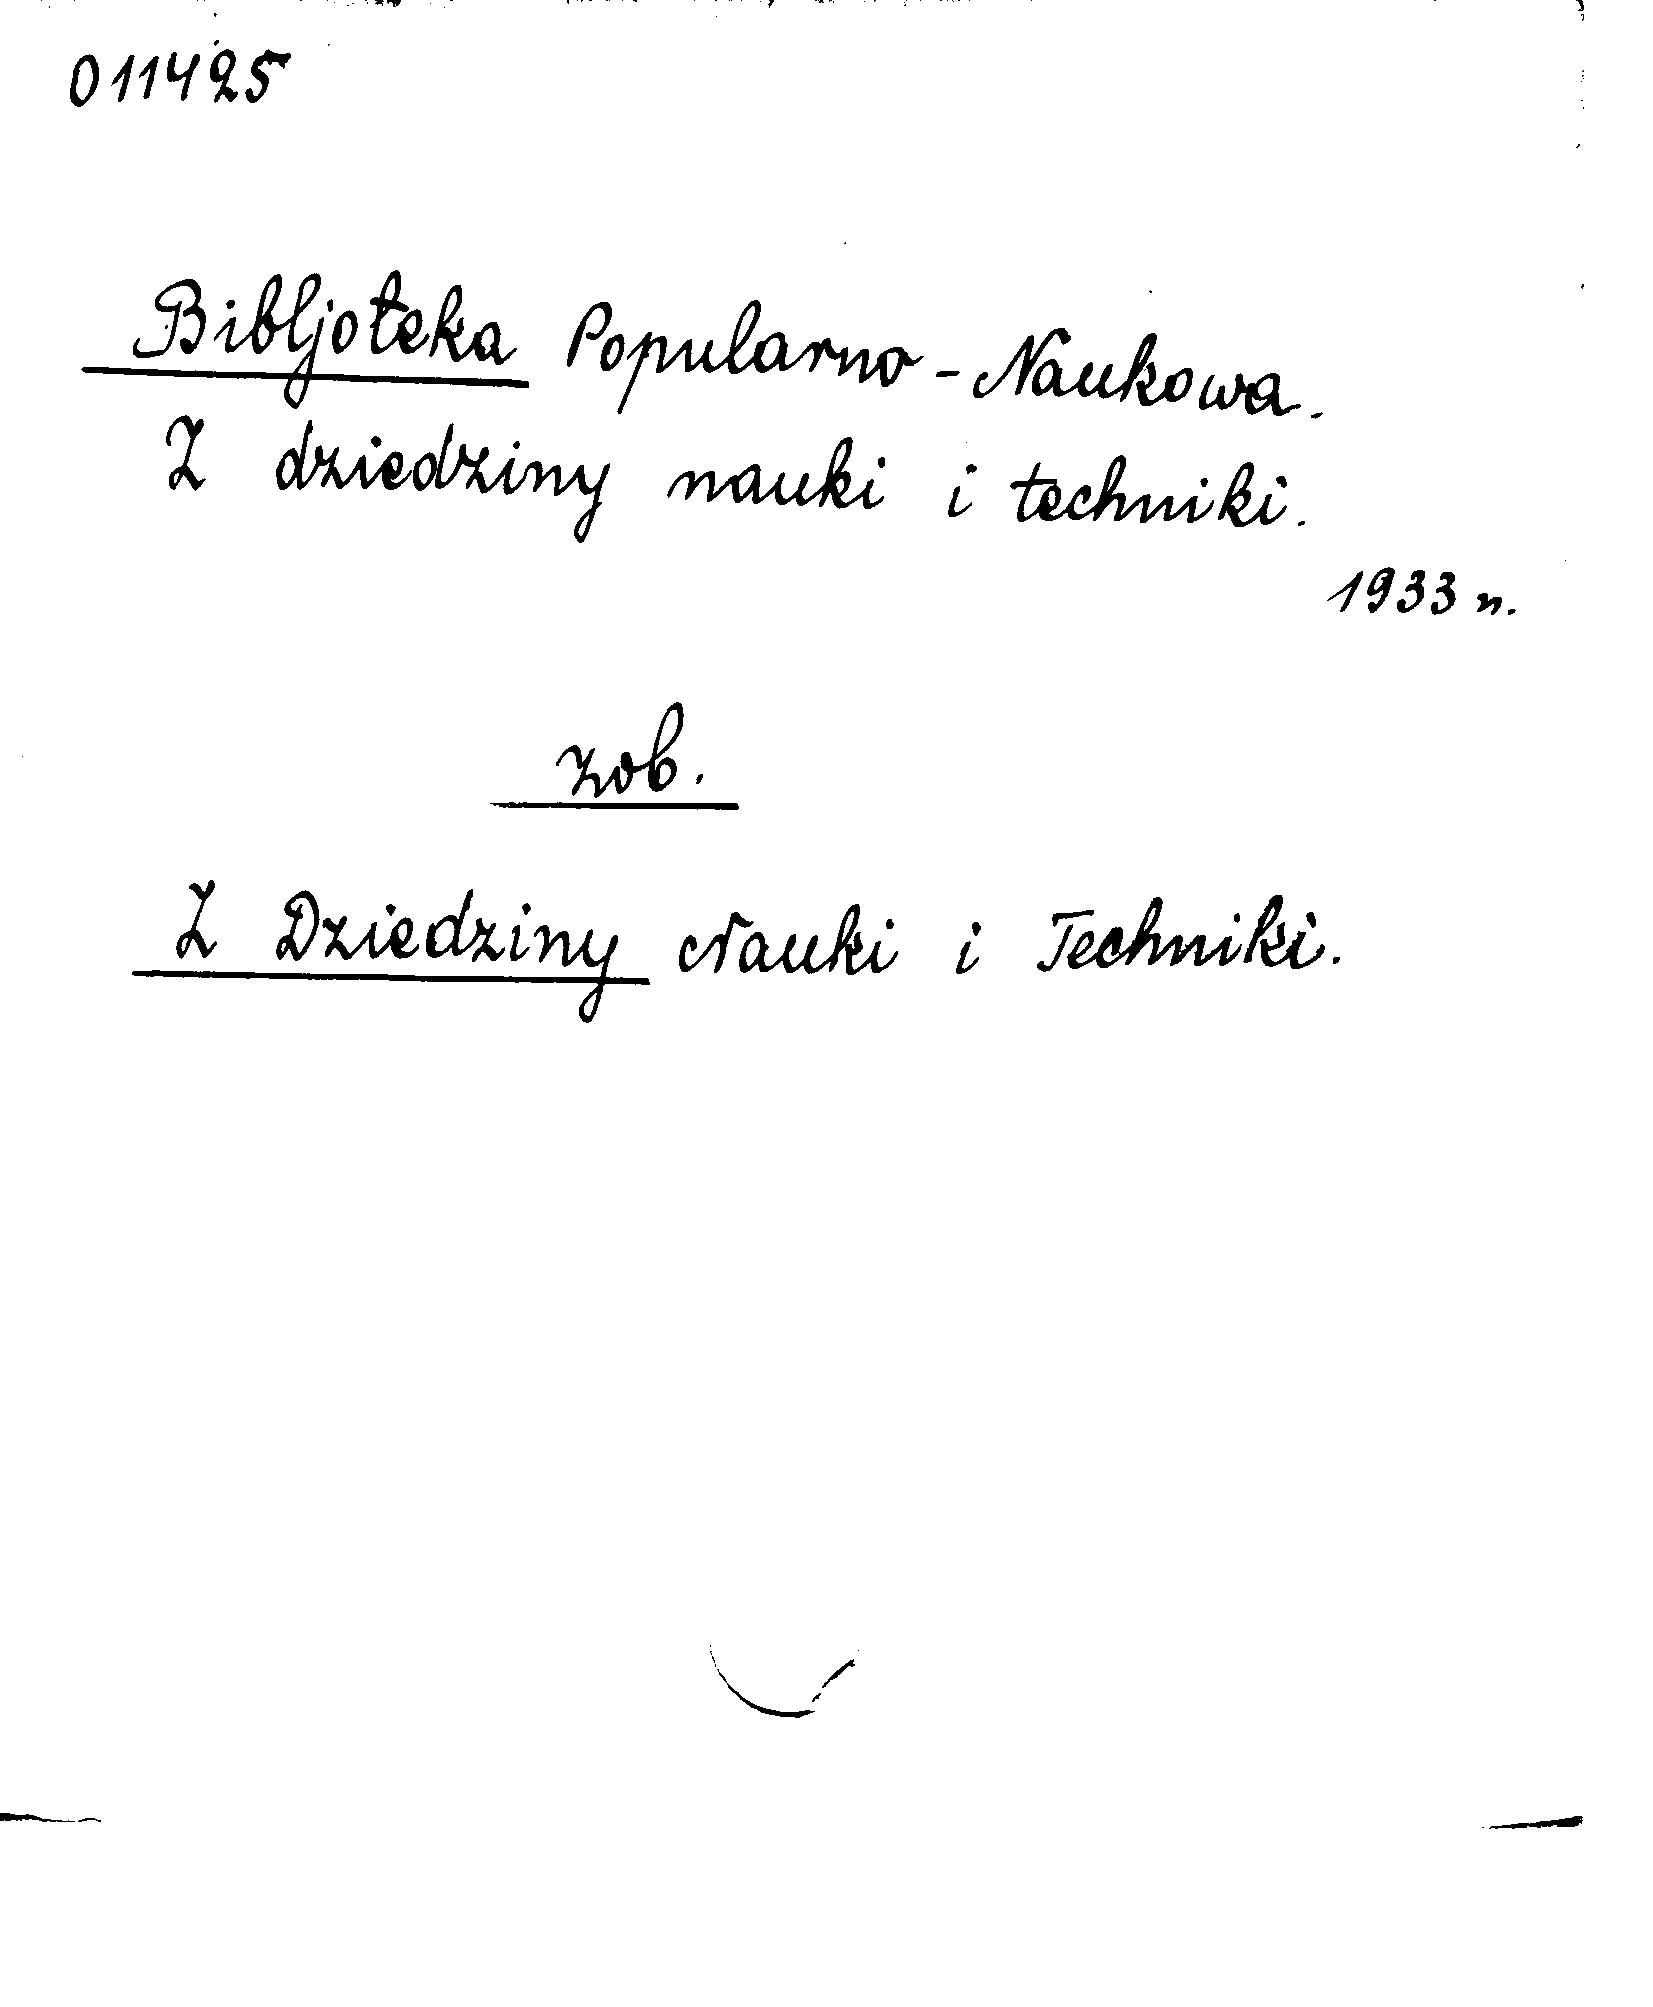 011425
Bibljoteka Popularno-Naukowa.
Z dziedziny nauki i techniki.
1933 r.
zob.
Z Dziedziny Nauki i Techniki.